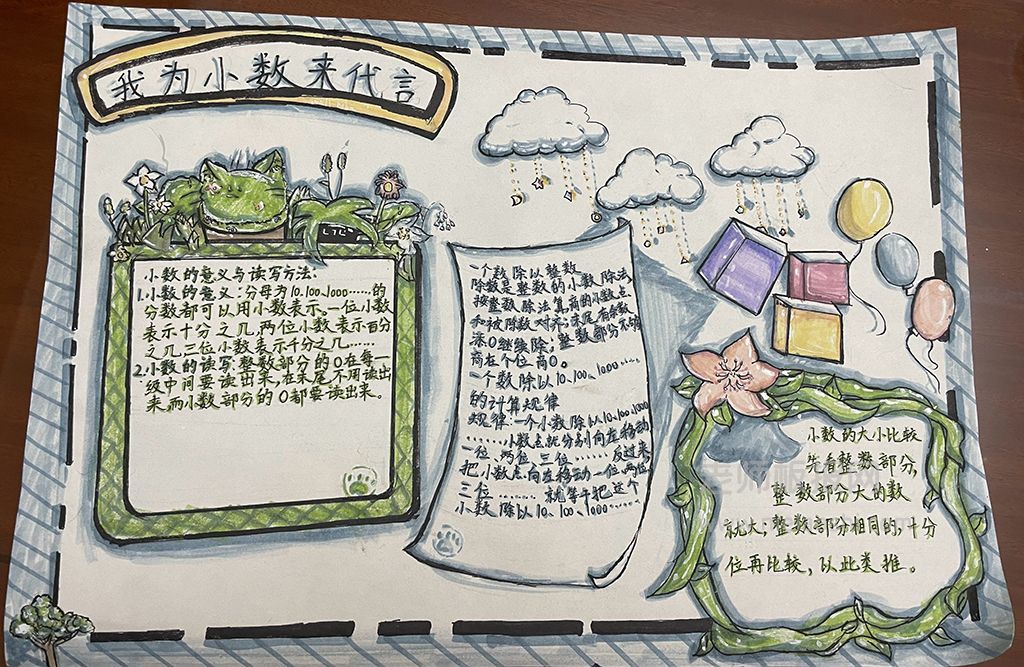 我为小数来代言
小数的意义与读写方法:
1.小数的意义:分母为10.100.1000……的
分数都可以用小数表示。一位小数
表示十分之几,两位小数表示百分
之几,三位小数表示千分之几……
2.小数的读写:整数部分的0在每一
级中间要读出来,在末尾不用读出
来,而小数部分的0都要读出来。
一个数除以整数
除数是整数的小数除法
按整数除法算,商的小数点
和被除数对齐;末尾有余数
添0继续除;整数部分不够
商在个位商0。
一个数除以10、100、1000……
的计算规律
规律:一个小数除以10、100、1000
……小数点就分别向左移动
一位、两位、三位……反过来,
把小数点向左移动一位、两位
三位……就等于把这个
小数除以10、100、1000……
小数的大小比较
先看整数部分,
整数部分大的数
就大;整数部分相同的,十分
位再比较,以此类推。